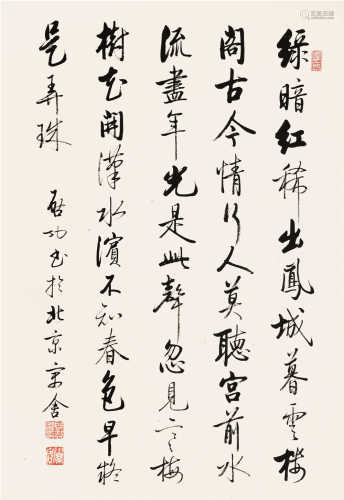 綠暗紅稀出鳳城暮雲樓
閣古今情行人莫聽宮前水
流盡年光是此聲忽見寒梅
樹花開漢水濱不知春色早疑
是弄珠
啟功書於北京寓舍